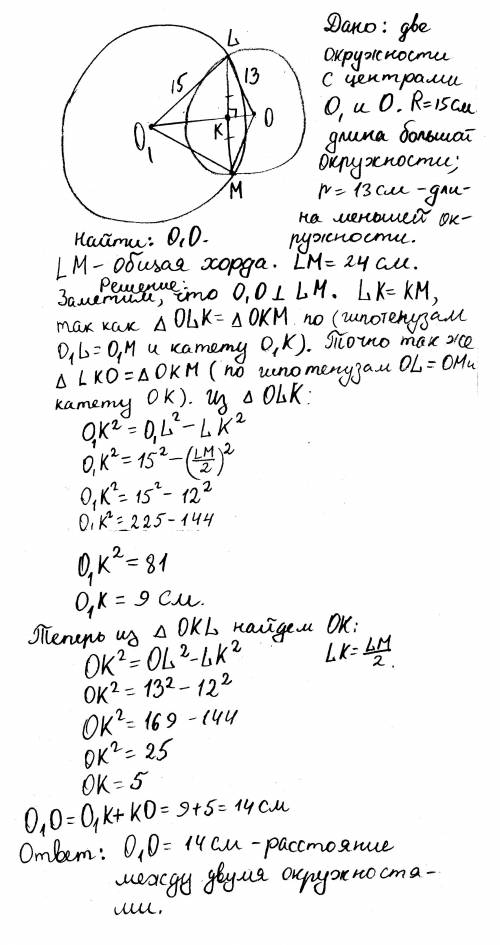 Дано: две
окружности
с центрами
O₁ и O. R=15см
длина большой
окружности;
r=13см -дли-
на меньшей ок-
ружности.
L
15
13
O₁
K
O
M
Найти: O₁O.
LM - общая хорда. LM=24 см.
Решение:
Заметим, что O₁O ⊥ LM. LK=KM,
так как △ OLK=△ OKM по (гипотенузам
O₁L=O₁M и катету O₁K). Точно так же
△ LKO=△OKM (по гипотенузам OL=OM и
катету OK). Из △ OLK:
O₁K²=O₁L²-LK²
O₁K²=15²-(LM/2)²
O₁K²=15²-12²
O₁K²=225-144
O₁K²=81
O₁K=9 см.
Теперь из △ OKL найдем OK:
OK²=OL²-LK²
LK=LM/2.
OK²=13²-12²
OK²=169-144
OK²=25
OK=5
O₁O=O₁K+KO=9+5=14см
Ответ: O₁O=14см -расстояние
между двумя окружностя-
ми.